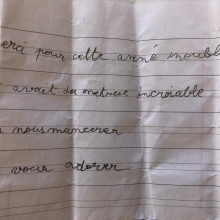 erci pour cette anné inoubl
avait des metresse incroiable
nous mancerer
vous adorer